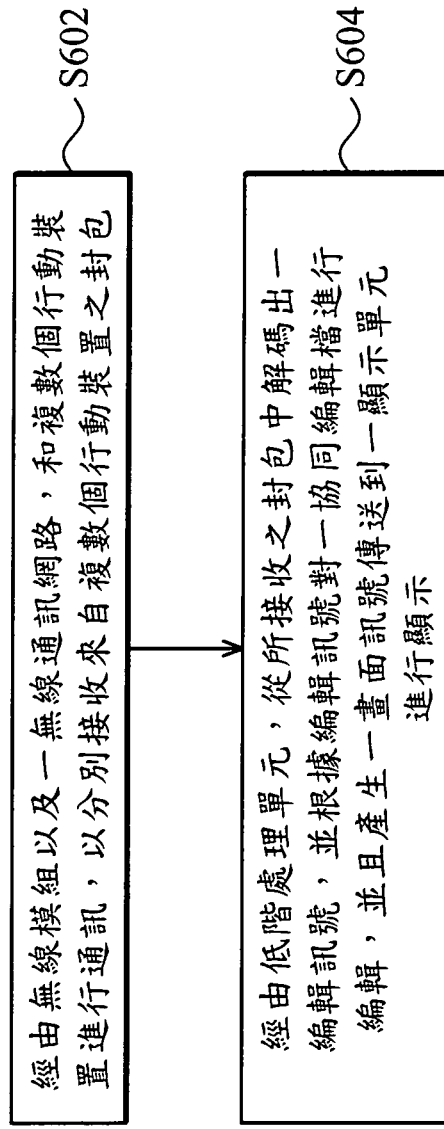 經由無線模組以及一無線通訊網路，和複數個行動裝
置進行通訊，以分別接收來自複數個行動裝置之封包
S602
經由低階處理單元，從所接收之封包中解碼出一
編輯訊號，並根據編輯訊號對一協同編輯檔進行
編輯，並且產生一畫面訊號傳送到一顯示單元
進行顯示
S604